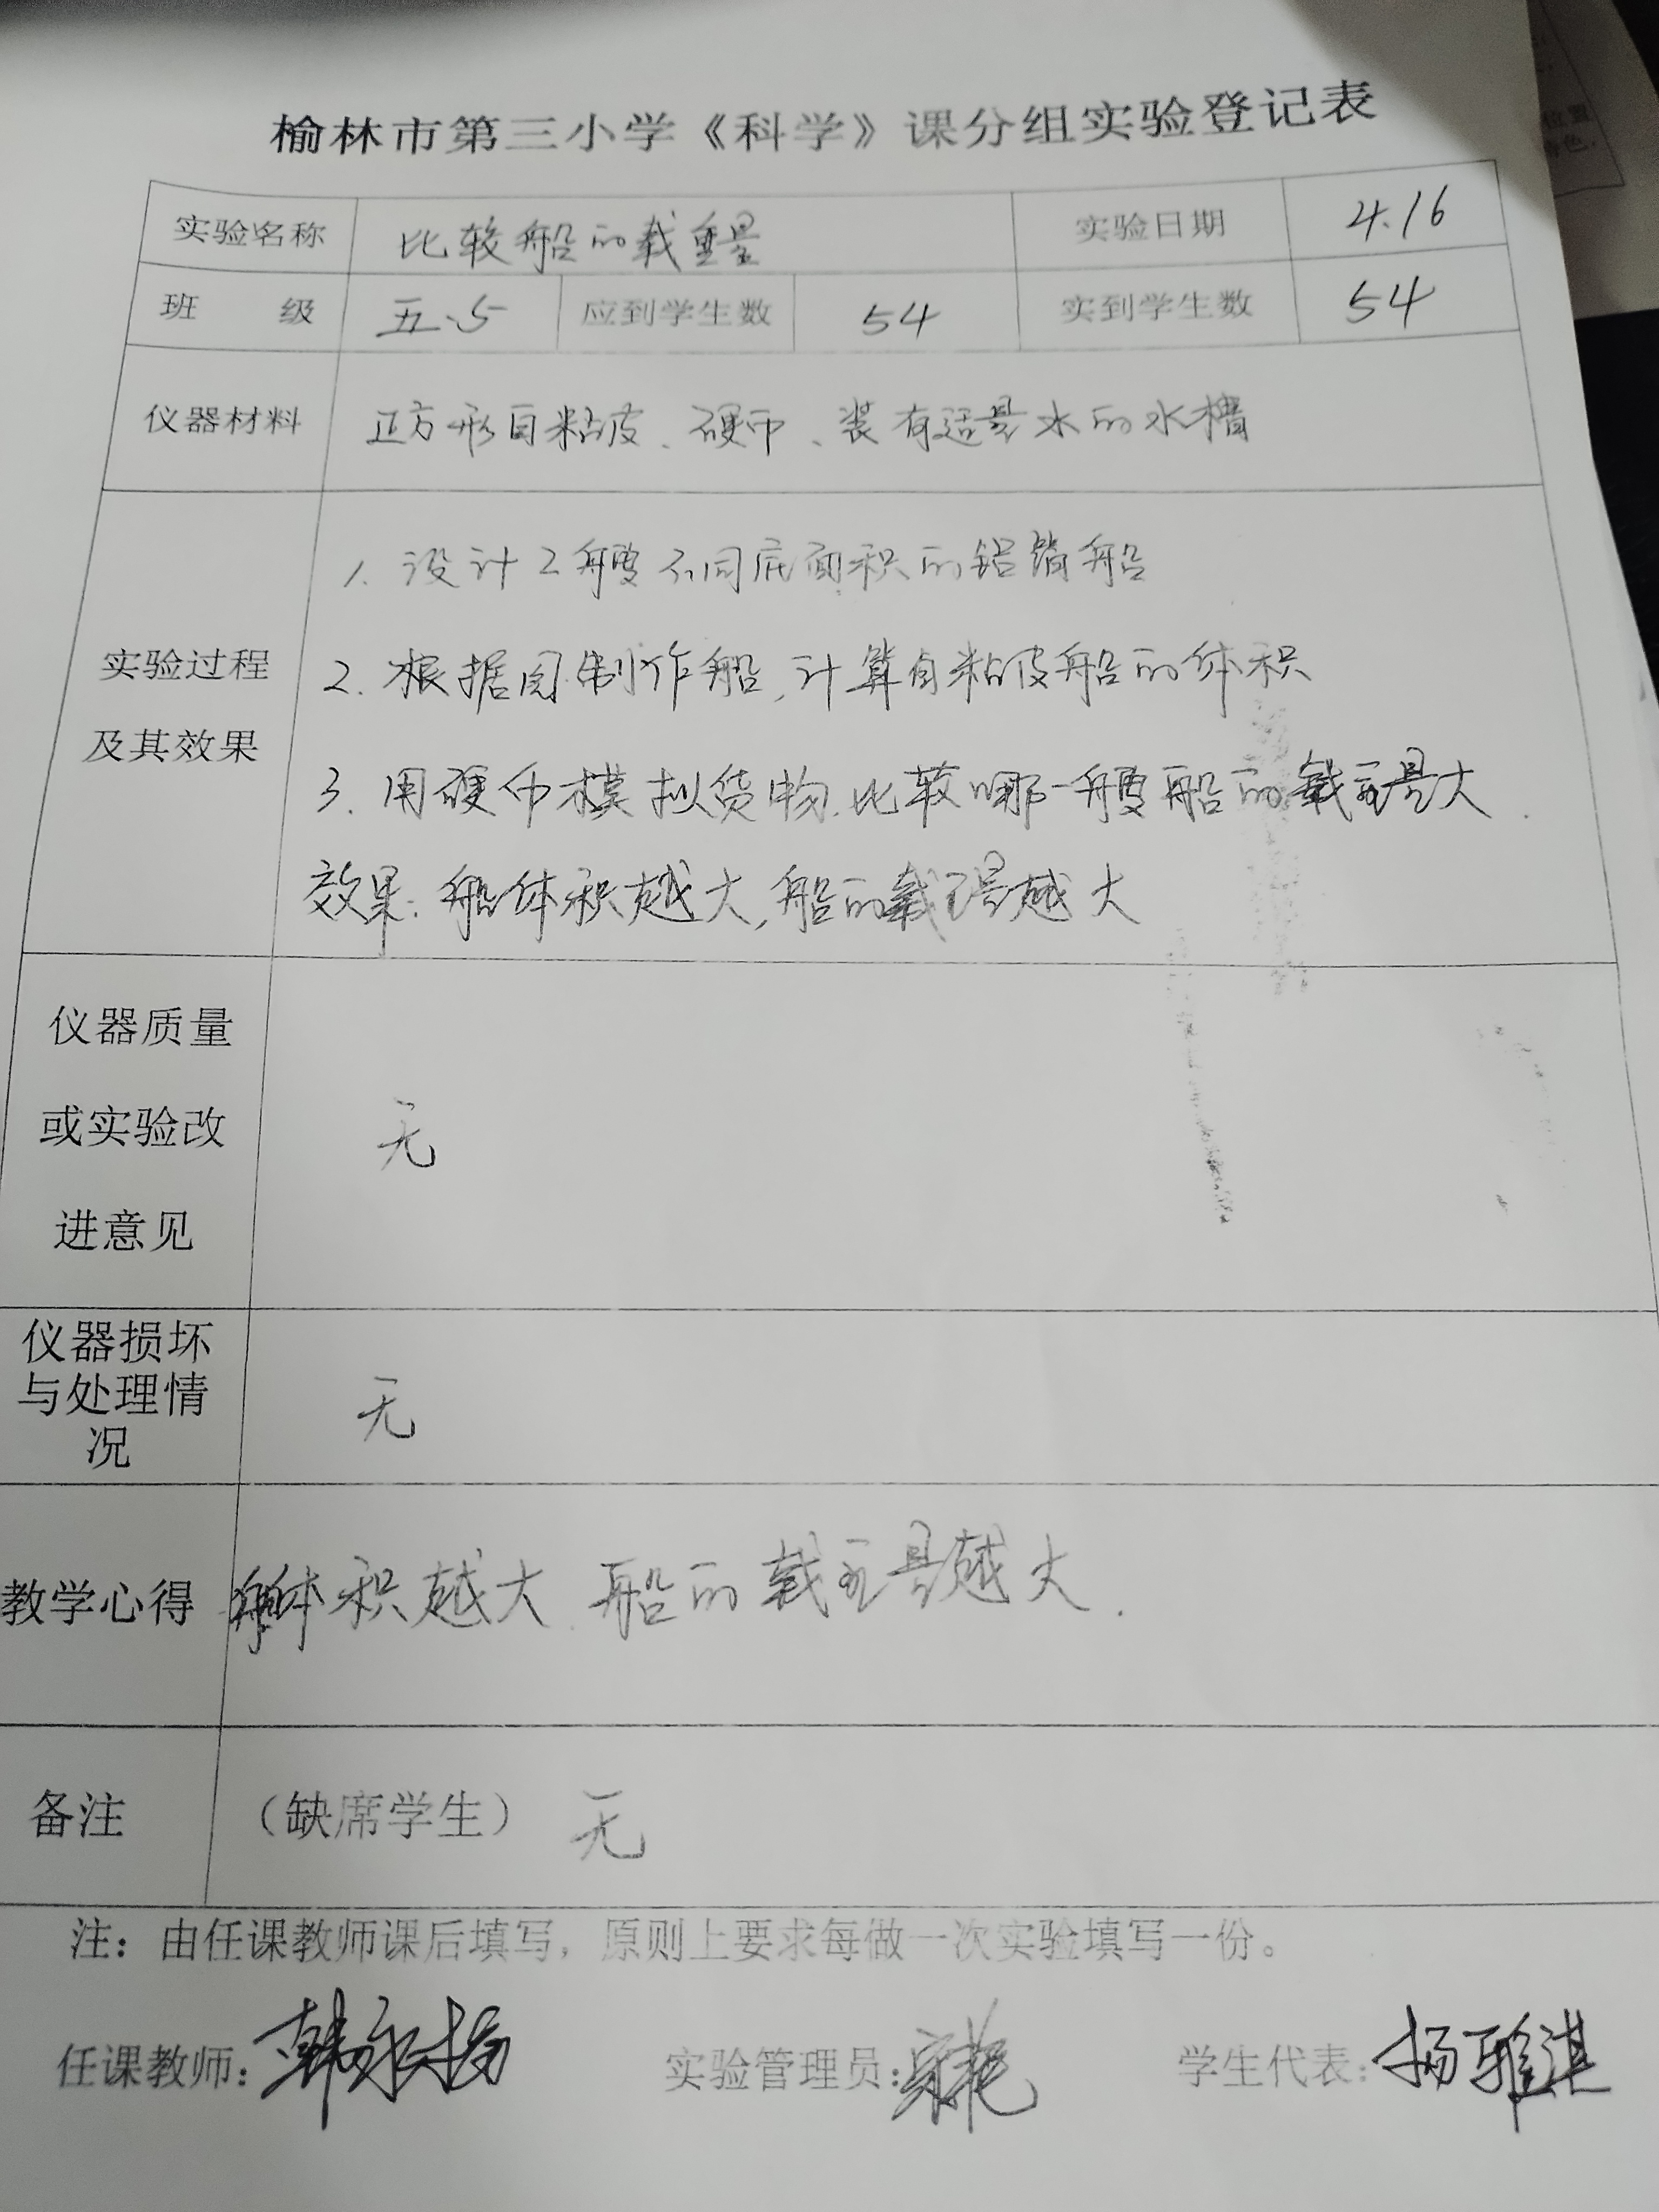 榆林市第三小学《科学》课分组实验登记表
实验名称 比较船的载重量 实验日期 4.16
班 级 五.5 应到学生数 54 实到学生数 54
仪器材料 正方形自粘皮、硬币、装有适量水的水槽
1. 设计2艘不同底面积的铝箔船
实验过程 2. 根据图制作船,计算自粘皮船的体积
及其效果
3. 用硬币模拟货物.比较哪一艘船的载重量大.
效果:船体积越大,船的载重量越大
仪器质量
或实验改 无
进意见
仪器损坏
与处理情 无
况
教学心得 船体积越大.船的载重量越大.
备注 (缺席学生) 无
注:由任课教师课后填写,原则上要求每做一次实验填写一份。
任课教师:韩永扬 实验管理员: 学生代表:杨雅淇